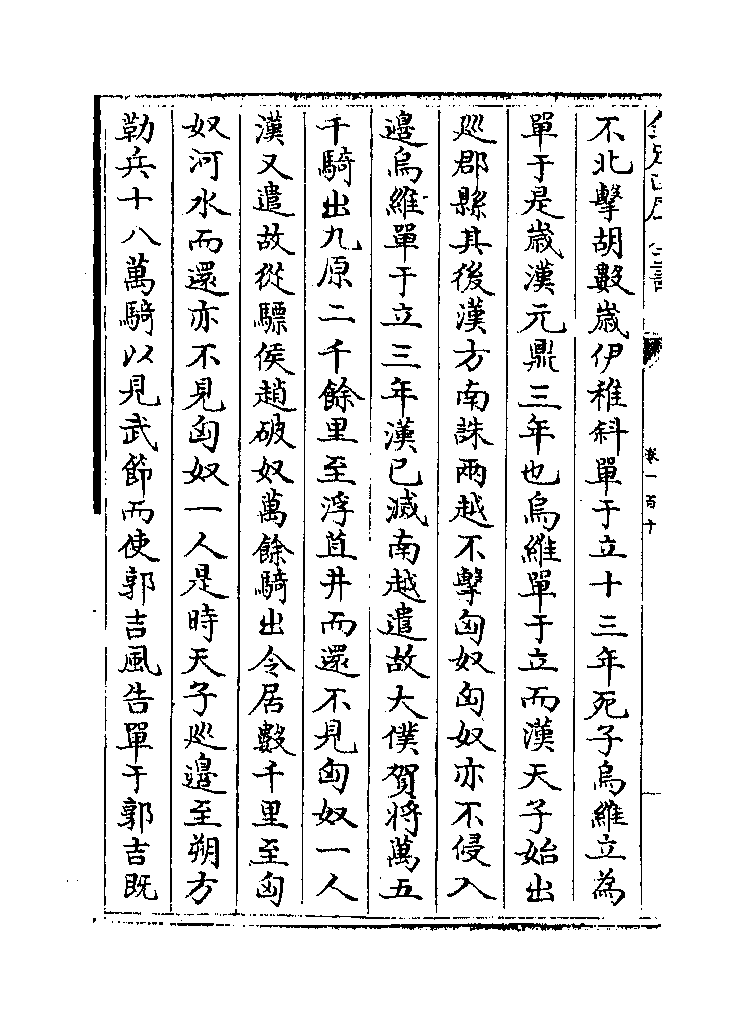 卷一百十
不北擊胡數歲伊稚斜單于立十三年死子烏維立為
單于是歲漢元鼎三年也烏維單于立而漢天子始出
廵郡縣其後漢方南誅兩越不擊匈奴匈奴亦不侵入
邊烏維單于立三年漢已滅南越遣故大僕賀將萬五
千騎出九原二千餘里至浮苴井而還不見匈奴一人
漢又遣故從驃侯趙破奴萬餘騎出令居數千里至匈
奴河水而還亦不見匈奴一人是時天子廵邊至朔方
勒兵十八萬騎以見武節而使郭吉風告單于郭吉既